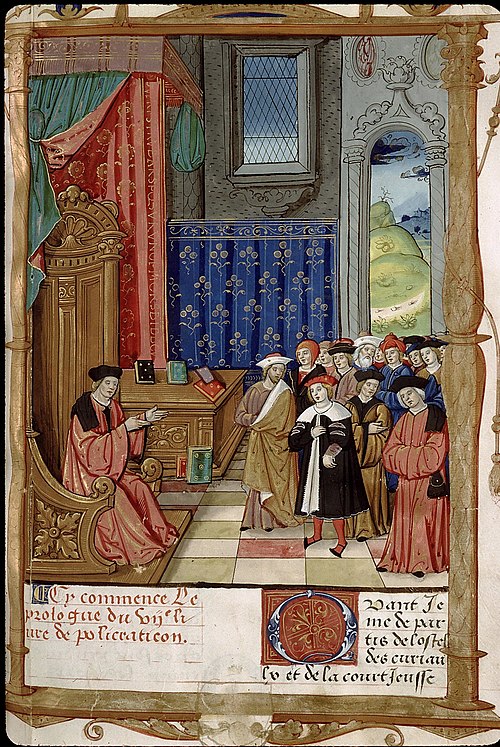 Cy commence Le
prologue du vije li
ure de policraticon.
Quant Je
me de par
tis de lostel
des curiau
lx et de la court Jeusse